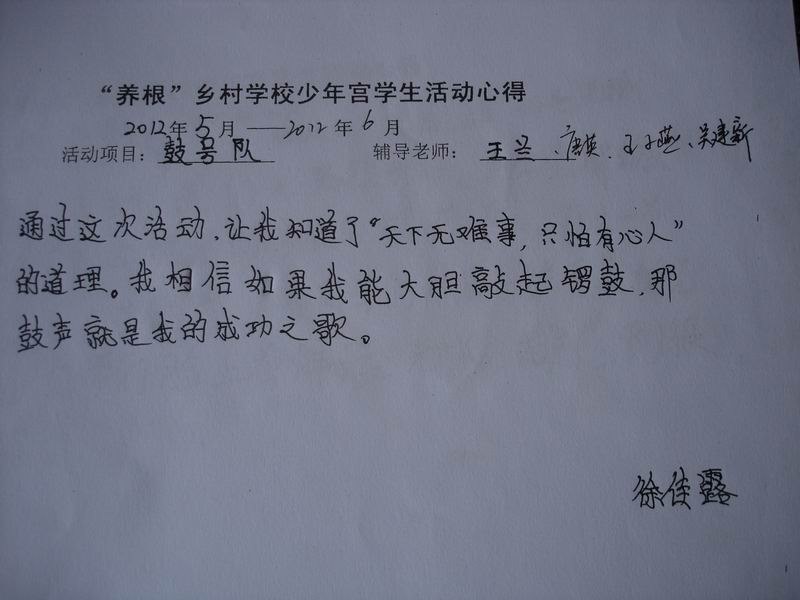 “养根”乡村学校少年宫学生活动心得
2012年5月——2012年6月
活动项目：鼓号队 辅导老师：王兰、唐英、王子燕、吴建新
通过这次活动，让我知道了“天下无难事，只怕有心人”
的道理。我相信如果我能大胆敲起锣鼓，那
鼓声就是我的成功之歌。
徐佳露